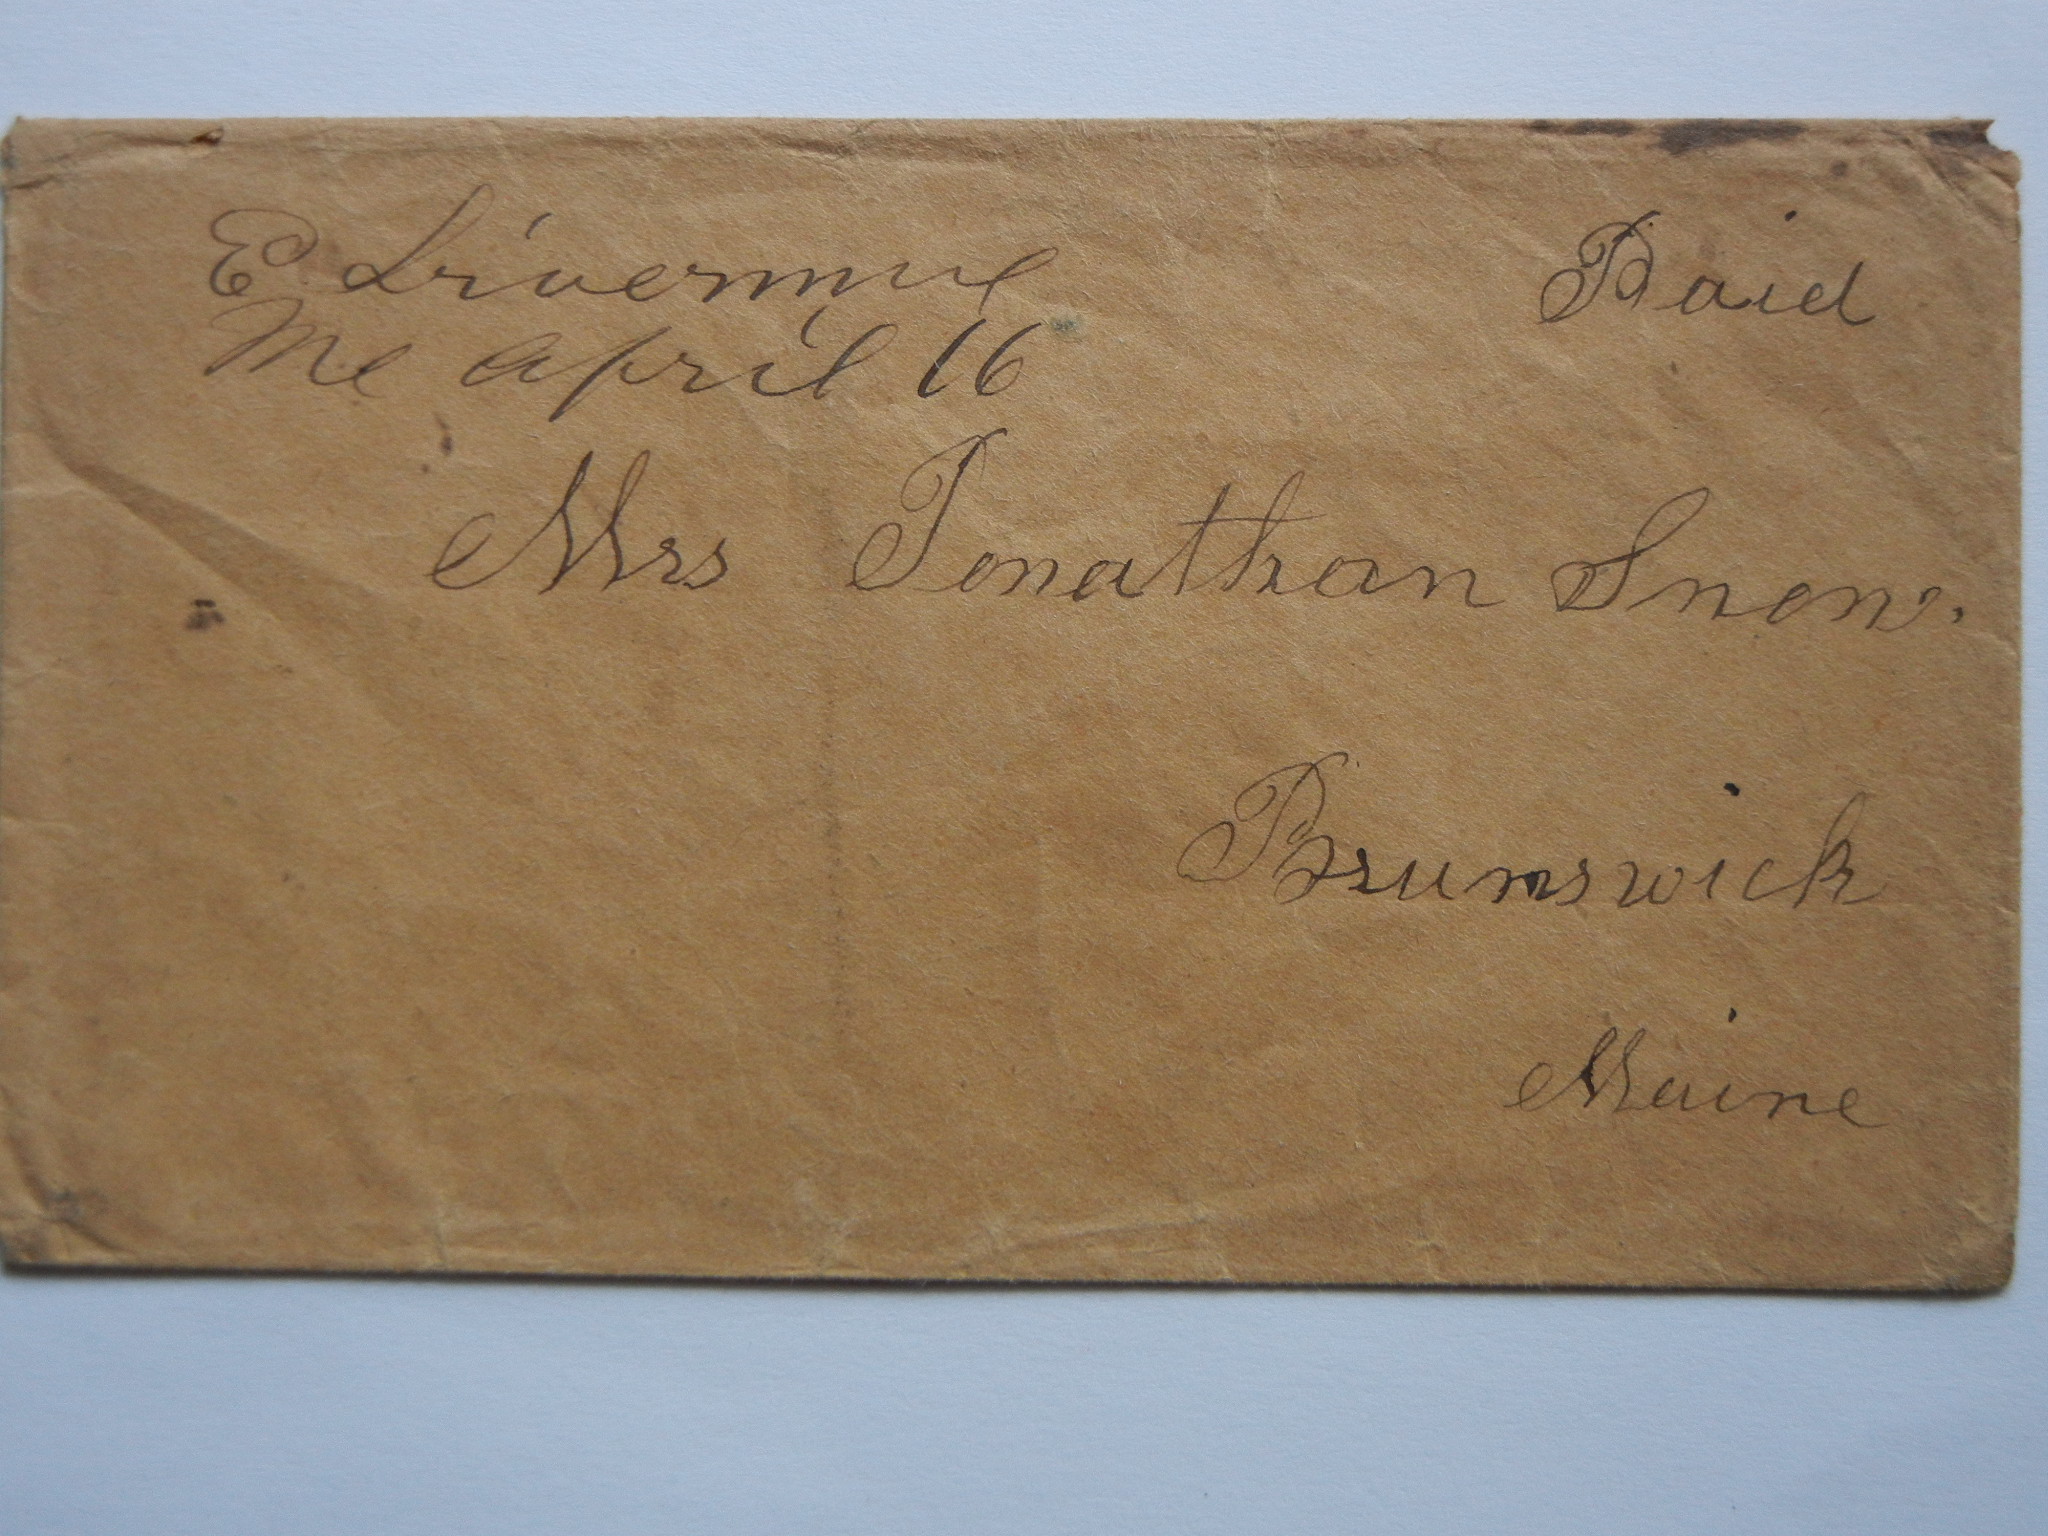 E. Livermore
Paid
Me April 16
Mrs Jonathan Snow.
Brunswick
Maine